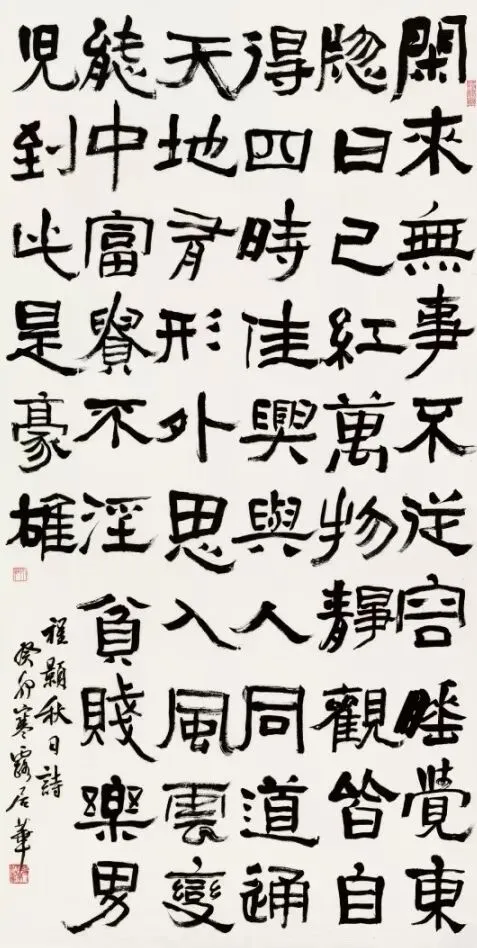 閑來無事不從容睡覺東
牕日已紅萬物靜觀皆自
得四時佳興與人同道通
天地有形外思入風雲變
態中富貴不淫貧賤樂男
兒到此是豪雄
程顥秋日詩
癸卯寒露居華